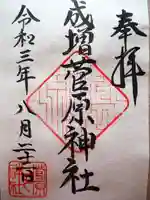 奉拝
成増菅原神社
令和三年八月二十二日